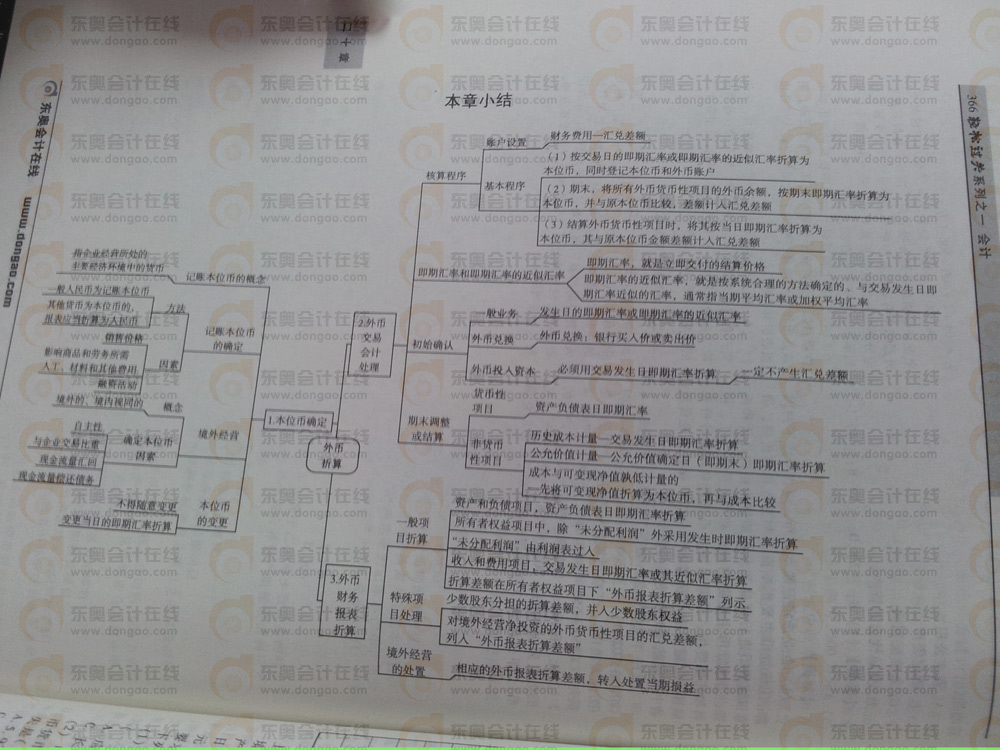 十章
本章小结
366 轻松过关系列之一 会计
东奥会计在线
www.dongao.com
外币
折算
1.本位币确定
记账本位币
的确定
记账本位币的概念
指企业经营所处的
主要经济环境中的货币
方法
一般人民币为记账本位币
其他货币为本位币的，
报表应当折算为人民币
因素
销售价格
影响商品和劳务所需
人工、材料和其他费用
融资活动
境外经营
概念
境外的、境内视同的
确定本位币
因素
自主性
与企业交易比重
现金流量汇回
现金流量偿还债务
本位币
的变更
不得随意变更
变更当日的即期汇率折算
2.外币
交易
会计
处理
核算程序
账户设置
财务费用—汇兑差额
基本程序
（1）按交易日的即期汇率或即期汇率的近似汇率折算为
本位币，同时登记本位币和外币账户
（2）期末，将所有外币货币性项目的外币余额，按期末即期汇率折算为
本位币，并与原本位币比较，差额计入汇兑差额
（3）结算外币货币性项目时，将其按当日即期汇率折算为
本位币，其与原本位币金额差额计入汇兑差额
即期汇率和即期汇率的近似汇率
即期汇率，就是立即交付的结算价格
即期汇率的近似汇率，就是按系统合理的方法确定的、与交易发生日即
期汇率近似的汇率，通常指当期平均汇率或加权平均汇率
初始确认
一般业务
发生日的即期汇率或即期汇率的近似汇率
外币兑换
外币兑换：银行买入价或卖出价
外币投入资本
必须用交易发生日即期汇率折算
一定不产生汇兑差额
期末调整
或结算
货币性
项目
资产负债表日即期汇率
非货币
性项目
历史成本计量—交易发生日即期汇率折算
公允价值计量—公允价值确定日（即期末）即期汇率折算
成本与可变现净值孰低计量的
—先将可变现净值折算为本位币，再与成本比较
3.外币
财务
报表
折算
一般项
目折算
资产和负债项目，资产负债表日即期汇率折算
所有者权益项目中，除“未分配利润”外采用发生时即期汇率折算
“未分配利润”由利润表过入
收入和费用项目，交易发生日即期汇率或其近似汇率折算
折算差额在所有者权益项目下“外币报表折算差额”列示
特殊项
目处理
少数股东分担的折算差额，并入少数股东权益
对境外经营净投资的外币货币性项目的汇兑差额，
列入“外币报表折算差额”
境外经营
的处置
相应的外币报表折算差额，转入处置当期损益